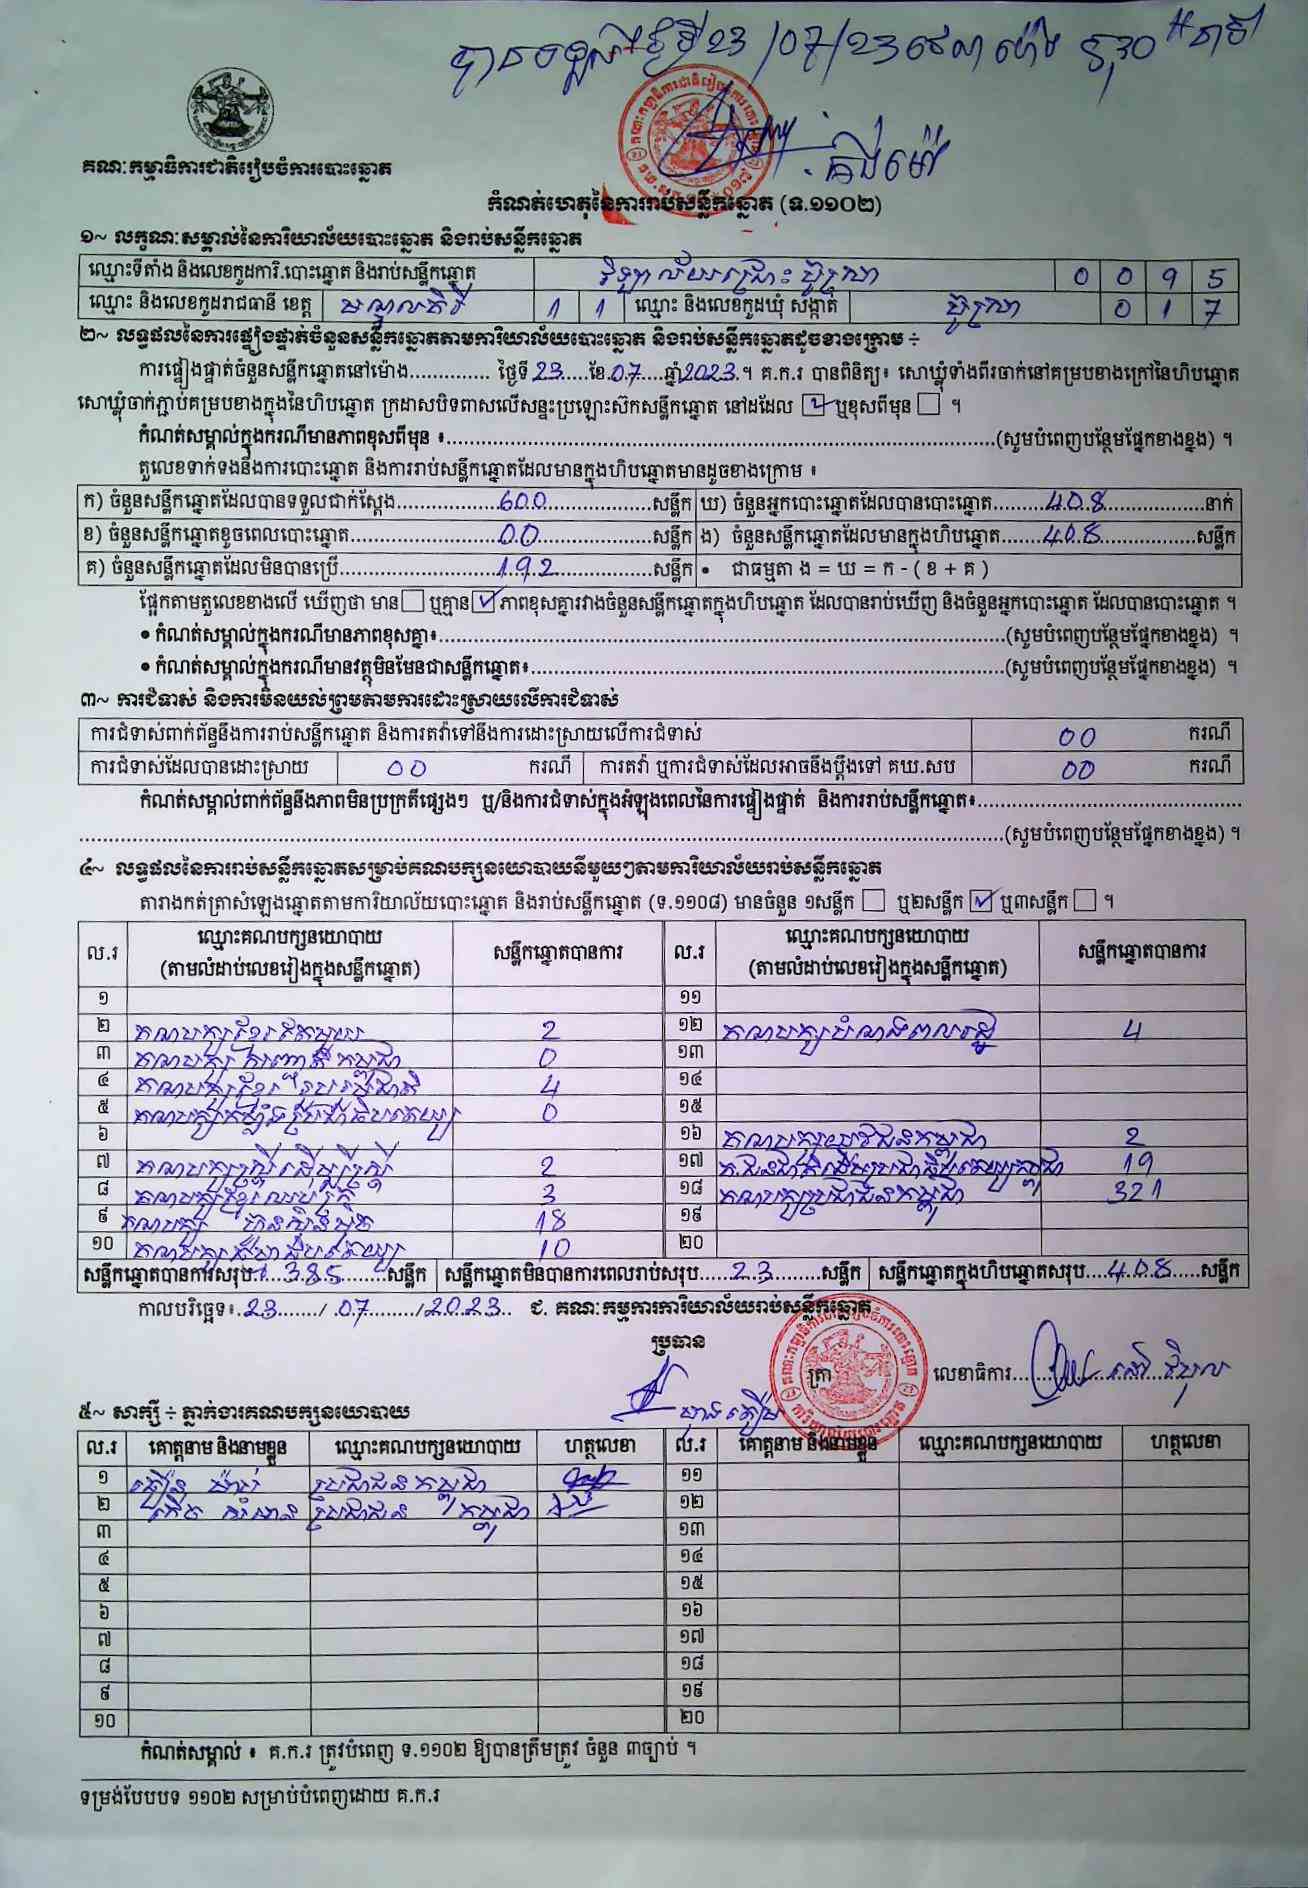 បានទទួលនៅថ្ងៃទី 23/07/23 វេលាម៉ោង 5:30 នាទី
គណៈកម្មាធិការជាតិរៀបចំការបោះឆ្នោត
កំណត់ហេតុនៃការរាប់សន្លឹកឆ្នោត (ទ.១១០២)
១~ លក្ខណៈសម្គាល់នៃការិយាល័យបោះឆ្នោត និងរាប់សន្លឹកឆ្នោត
ឈ្មោះទីតាំង និងលេខកូដការិ.បោះឆ្នោត និងរាប់សន្លឹកឆ្នោត វិទ្យាល័យ ប៊ូស្រា 0 0 9 5
ឈ្មោះ និងលេខកូដរាជធានី ខេត្ត មណ្ឌលគិរី 1 1 ឈ្មោះ និងលេខកូដឃុំ សង្កាត់ ប៊ូស្រា 0 1 7
២~ លទ្ធផលនៃការផ្ទៀងផ្ទាត់ចំនួនសន្លឹកឆ្នោតតាមការិយាល័យបោះឆ្នោត និងរាប់សន្លឹកឆ្នោតដូចខាងក្រោម ÷
ការផ្ទៀងផ្ទាត់ចំនួនសន្លឹកឆ្នោតនៅម៉ោង.............. ថ្ងៃទី 23 ខែ 07 ឆ្នាំ 2023 ។ គ.ក.រ បានពិនិត្យ៖ សោឃ្លុំទាំងពីរចាក់នៅគម្របខាងក្រៅនៃហិបឆ្នោត
សោឃ្លុំចាក់ភ្ជាប់គម្របខាងក្នុងនៃហិបឆ្នោត ក្រដាសបិទពាសលើសន្ទះប្រឡោះស៊កសន្លឹកឆ្នោត នៅដដែល ☑ ឬខុសពីមុន ☐ ។
កំណត់សម្គាល់ក្នុងករណីមានភាពខុសពីមុន ៖..........(សូមបំពេញបន្ថែមផ្នែកខាងខ្នង) ។
តួលេខទាក់ទងនឹងការបោះឆ្នោត និងការរាប់សន្លឹកឆ្នោតដែលមានក្នុងហិបឆ្នោតមានដូចខាងក្រោម ៖
ក) ចំនួនសន្លឹកឆ្នោតដែលបានទទួលជាក់ស្តែង 600 សន្លឹក ឃ) ចំនួនអ្នកបោះឆ្នោតដែលបានបោះឆ្នោត 408 នាក់
ខ) ចំនួនសន្លឹកឆ្នោតខូចពេលបោះឆ្នោត 00 សន្លឹក ង) ចំនួនសន្លឹកឆ្នោតដែលមានក្នុងហិបឆ្នោត 408 សន្លឹក
គ) ចំនួនសន្លឹកឆ្នោតដែលមិនបានប្រើ 192 សន្លឹក • ជាធម្មតា ង = ឃ = ក - ( ខ + គ )
ផ្អែកតាមតួលេខខាងលើ ឃើញថា មាន ☐ ឬគ្មាន ☑ ភាពខុសគ្នារវាងចំនួនសន្លឹកឆ្នោតក្នុងហិបឆ្នោត ដែលបានរាប់ឃើញ និងចំនួនអ្នកបោះឆ្នោត ដែលបានបោះឆ្នោត ។
• កំណត់សម្គាល់ក្នុងករណីមានភាពខុសគ្នា៖..........(សូមបំពេញបន្ថែមផ្នែកខាងខ្នង) ។
• កំណត់សម្គាល់ក្នុងករណីមានវត្ថុមិនមែនជាសន្លឹកឆ្នោត៖..........(សូមបំពេញបន្ថែមផ្នែកខាងខ្នង) ។
៣~ ការជំទាស់ និងការមិនយល់ព្រមតាមការដោះស្រាយលើការជំទាស់
ការជំទាស់ពាក់ព័ន្ធនឹងការរាប់សន្លឹកឆ្នោត និងការតវ៉ាទៅនឹងការដោះស្រាយលើការជំទាស់ 00 ករណី
ការជំទាស់ដែលបានដោះស្រាយ 00 ករណី ការតវ៉ា ឬការជំទាស់ដែលអាចនឹងប្តឹងទៅ គឃ.សប 00 ករណី
កំណត់សម្គាល់ពាក់ព័ន្ធនឹងភាពមិនប្រក្រតីផ្សេងៗ ឬ/និងការជំទាស់ក្នុងអំឡុងពេលនៃការផ្ទៀងផ្ទាត់ និងការរាប់សន្លឹកឆ្នោត៖..........
..........(សូមបំពេញបន្ថែមផ្នែកខាងខ្នង) ។
៤~ លទ្ធផលនៃការរាប់សន្លឹកឆ្នោតសម្រាប់គណបក្សនយោបាយនីមួយៗតាមការិយាល័យរាប់សន្លឹកឆ្នោត
តារាងកត់ត្រាសំឡេងឆ្នោតតាមការិយាល័យបោះឆ្នោត និងរាប់សន្លឹកឆ្នោត (ទ.១១០៨) មានចំនួន ១សន្លឹក ☐ ឬ២សន្លឹក ☑ ឬ៣សន្លឹក ☐ ។
ល.រ ឈ្មោះគណបក្សនយោបាយ (តាមលំដាប់លេខរៀងក្នុងសន្លឹកឆ្នោត) សន្លឹកឆ្នោតបានការ ល.រ ឈ្មោះគណបក្សនយោបាយ (តាមលំដាប់លេខរៀងក្នុងសន្លឹកឆ្នោត) សន្លឹកឆ្នោតបានការ
១ ១១
២ គណបក្សខ្មែរតែមួយ 2 ១២ គណបក្ស 4
៣ គណបក្ស កម្ពុជា 0 ១៣
៤ គណបក្សខ្មែររួបរួមជាតិ 4 ១៤
៥ គណបក្សកម្លាំងប្រជាធិបតេយ្យ 0 ១៥
៦ ១៦ គណបក្សយុវជនកម្ពុជា 2
៧ គណបក្សស្ត្រីដើម្បីស្ត្រី 2 ១៧ គ.ជនជាតិដើមប្រជាធិបតេយ្យកម្ពុជា 19
៨ គណបក្សខ្មែរឈប់ក្រ 3 ១៨ គណបក្សប្រជាជនកម្ពុជា 321
៩ គណបក្ស ហ៊្វុនស៊ិនប៉ិច 18 ១៩
១០ គណបក្សធម្មាធិបតេយ្យ 10 ២០
សន្លឹកឆ្នោតបានការសរុប 385 សន្លឹក សន្លឹកឆ្នោតមិនបានការពេលរាប់សរុប 23 សន្លឹក សន្លឹកឆ្នោតក្នុងហិបឆ្នោតសរុប 408 សន្លឹក
កាលបរិច្ឆេទ៖ 23 / 07 / 2023 ជ. គណៈកម្មការការិយាល័យរាប់សន្លឹកឆ្នោត
ប្រធាន
ត្រា លេខាធិការ
៥~ សាក្សី ÷ ភ្នាក់ងារគណបក្សនយោបាយ
ល.រ គោត្តនាម និងនាមខ្លួន ឈ្មោះគណបក្សនយោបាយ ហត្ថលេខា ល.រ គោត្តនាម និងនាមខ្លួន ឈ្មោះគណបក្សនយោបាយ ហត្ថលេខា
១ ប្រជាជនកម្ពុជា ១១
២ ប្រជាជន កម្ពុជា ១២
៣ ១៣
៤ ១៤
៥ ១៥
៦ ១៦
៧ ១៧
៨ ១៨
៩ ១៩
១០ ២០
កំណត់សម្គាល់ ៖ គ.ក.រ ត្រូវបំពេញ ទ.១១០២ ឱ្យបានត្រឹមត្រូវ ចំនួន ៣ច្បាប់ ។
ទម្រង់បែបបទ ១១០២ សម្រាប់បំពេញដោយ គ.ក.រ